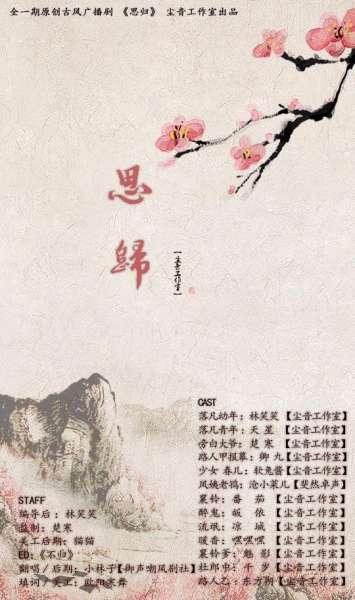 全一期原创古风广播剧 《思归》 尘音工作室出品
思
歸
【尘音工作室】
CAST
落凡幼年:林笑笑【尘音工作室】
落凡青年:天星【尘音工作室】
旁白大爷:楚寒【尘音工作室】
路人甲报幕:御九【尘音工作室】
少女 春儿:软兔酱【尘音工作室】
凤姚老鸨:沧小菜儿【斐然单声】
襄铃:番茄【尘音工作室】
醉鬼:皈依【尘音工作室】
流氓:凉城【尘音工作室】
暖香:嘿嘿嘿【尘音工作室】
襄铃爹:魅影【尘音工作室】
杜郎中:千岁【尘音工作室】
路人乙:东方朔【尘音工作室】
STAFF
编导后:林笑笑
监制:楚寒
美工后期:猫猫
ED:《不归》
翻唱/后期:小林子【御声嘲凤剧社】
填词/美工:欧阳寒舞